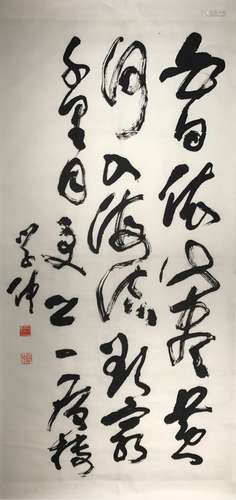 白日依山盡黄
河入海流欲窮
千里目更上一層樓
學仲